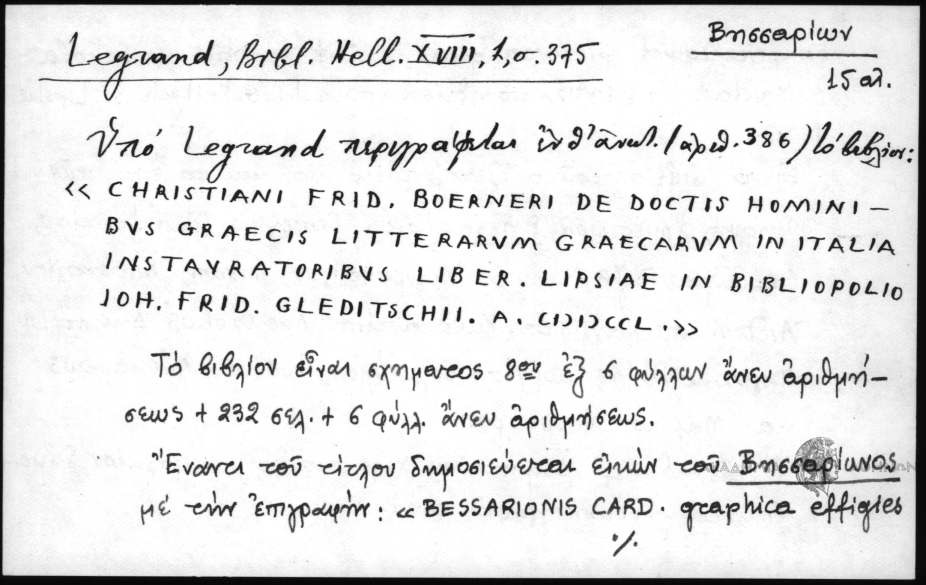 Βησσαρίων
Legrand, Bibl. Hell. XVIII, 1, σ. 375
15 αἰ.
Ὑπό Legrand περιγράφεται ἐν θ' ἀνωτ. (ἀριθ. 386) τό βιβλίον:
« CHRISTIANI FRID. BOERNERI DE DOCTIS HOMINI –
BVS GRAECIS LITTERARVM GRAECARVM IN ITALIA
INSTAVRATORIBVS LIBER. LIPSIAE IN BIBLIOPOLIO
IOH. FRID GLEDITSCHII. A. CIƆIƆCCL.»
Τό βιβλίον εἶναι σχήματος 8ου ἐξ 6 φύλλων ἄνευ ἀριθμή–
σεως + 232 σελ. + 6 φύλλ. ἄνευ ἀριθμήσεως.
Ἔναντι τοῦ τίτλου δημοσιεύεται εἰκών τοῦ Βησσαρίωνος
μέ τήν ἐπιγραφήν: « BESSARIONIS CARD. graphica effigies
./.